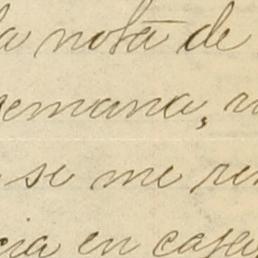 la nota de
semana, r
se me re
cia en case